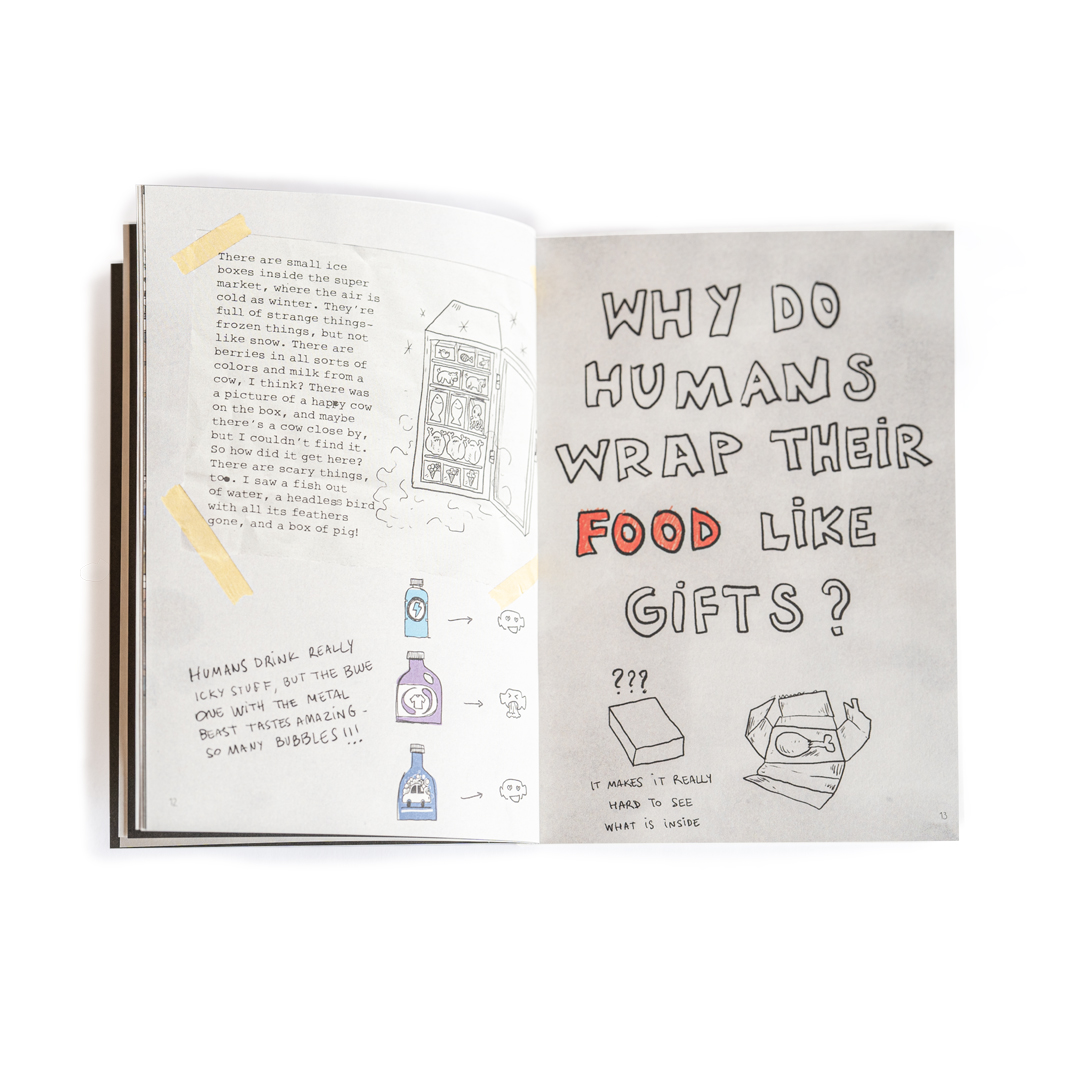 There are small ice
boxes inside the super
market, where the air is
cold as winter. They're
full of strange things-
frozen things, but not
like snow. There are
berries in all sorts of
colors and milk from a
cow, I think? There was
a picture of a happy cow
on the box, and maybe
there's a cow close by,
but I couldn't find it.
So how did it get here?
There are scary things,
too. I saw a fish out
of water, a headless bird
with all its feathers
gone, and a box of pig!
HUMANS DRINK REALLY
ICKY STUFF, BUT THE BLUE
ONE WITH THE METAL
BEAST TASTES AMAZING -
SO MANY BUBBLES!!!
12
WHY DO
HUMANS
WRAP THEIR
FOOD LIKE
GIFTS?
???
IT MAKES IT REALLY
HARD TO SEE
WHAT IS INSIDE
13